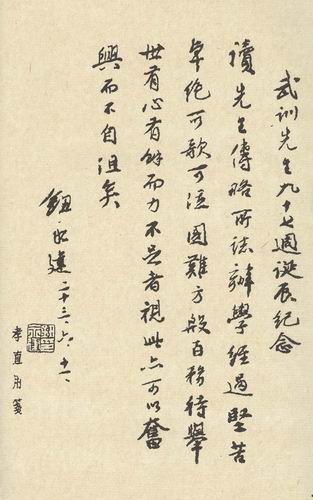 武訓先生九十七週誕辰紀念
讀先生傳略所誌辦學經過堅苦
卓絕可歌可泣國難方殷百務待舉
世有心有餘而力不足者視此亦可以奮
興而不自沮矣
鈕永建二十三、六、十一、
孝直用箋